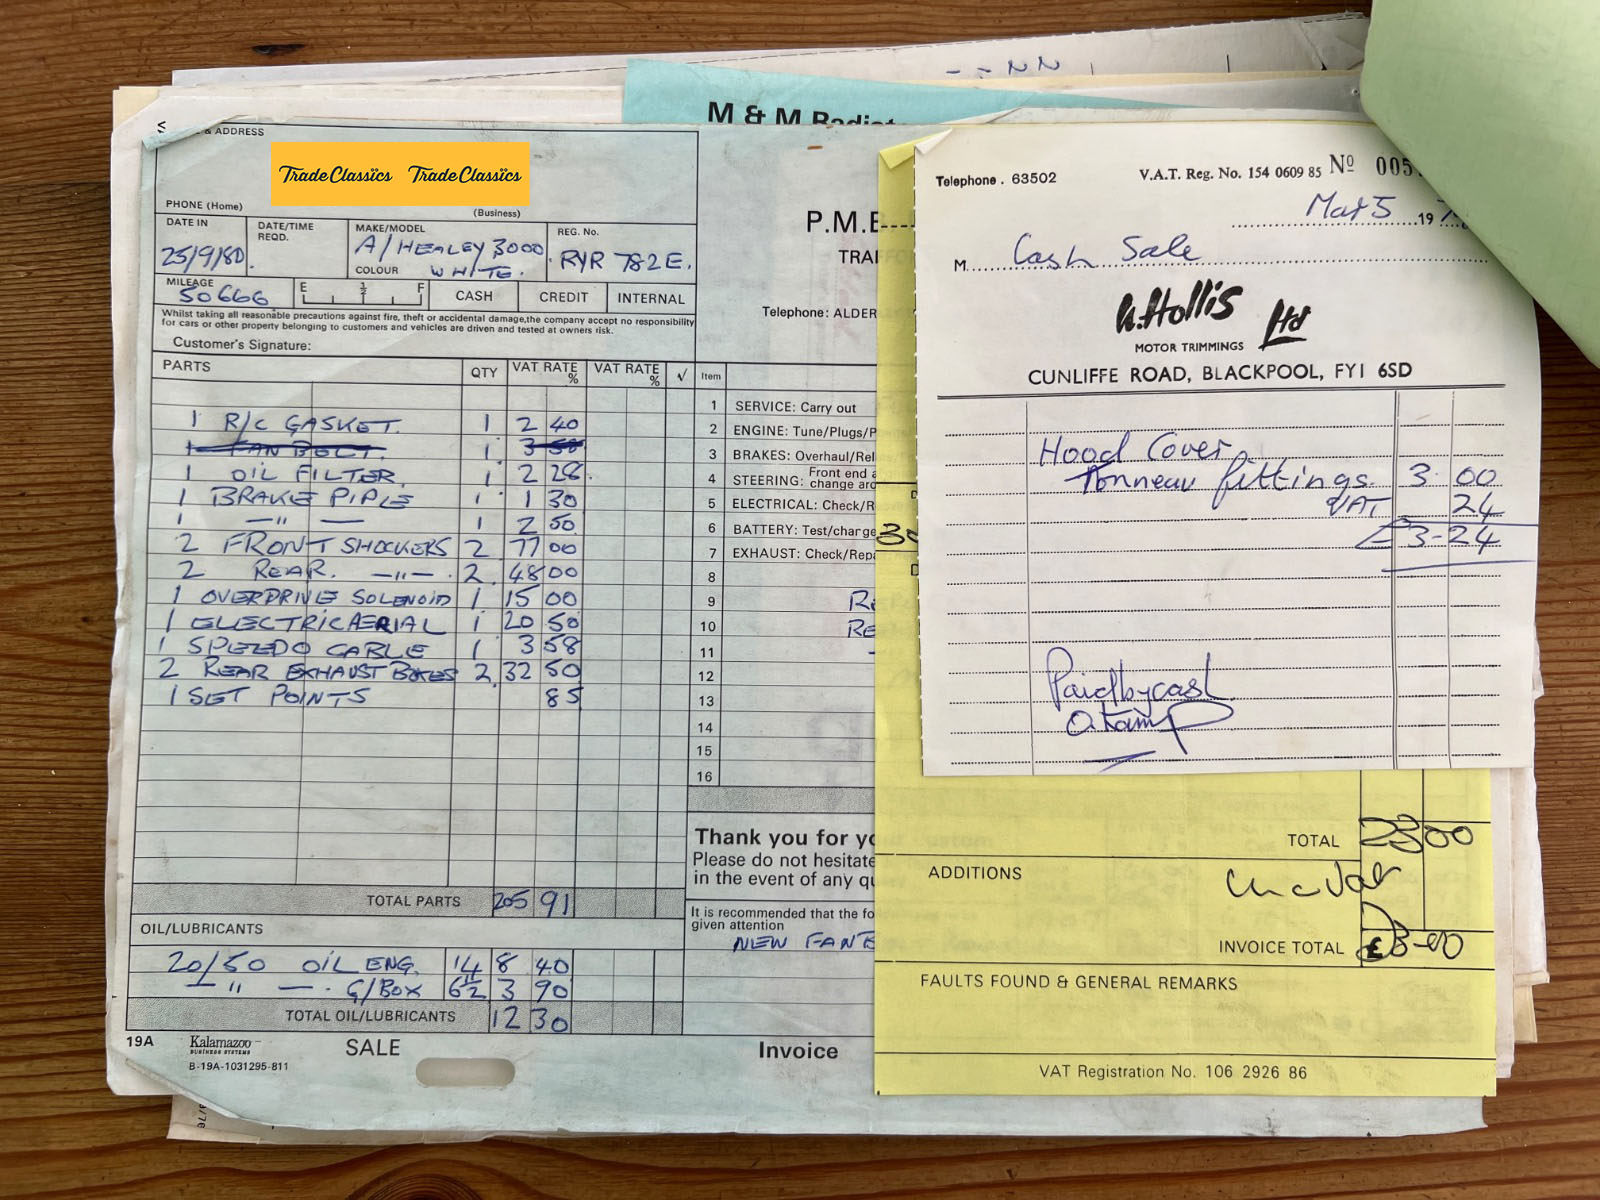 & ADDRESS
TradeClassics TradeClassics
PHONE (Home)
(Business)
DATE IN
DATE/TIME REQD.
MAKE/MODEL
REG. No.
25/9/80.
A/HEALEY 3000
COLOUR WHITE.
RYR 782E.
MILEAGE
50666
E ½ F
CASH
CREDIT
INTERNAL
Whilst taking all reasonable precautions against fire, theft or accidental damage,the company accept no responsibility
for cars or other property belonging to customers and vehicles are driven and tested at owners risk.
Customer's Signature:
PARTS QTY VAT RATE % VAT RATE % √
1 R/C GASKET. 1 2 40
1 FAN BELT. 1 3 50
1 OIL FILTER. 1 2 28.
1 BRAKE PIPLE 1 1 30
1 —"— 1 2 50
2 FRONT SHOCKERS 2 77 00
2 REAR. —"—. 2. 48 00
1 OVERDRIVE SOLENOID 1 15 00
1 ELECTRIC AERIAL 1 20 50
1 SPEEDO CABLE 1 3 58
2 REAR EXHAUST BOXES 2 32 50
1 SET POINTS 85
TOTAL PARTS 205 91
OIL/LUBRICANTS
20/50 OIL ENG. 14 8 40
—"—. G/BOX 6½ 3 90
TOTAL OIL/LUBRICANTS 12 30
19A
Kalamazoo
BUSINESS SYSTEMS
B-19A-1031295-811
SALE
Invoice
M & M Radiat
P.M.B
TRAFFO
Telephone: ALDER
Item
1 SERVICE: Carry out
2 ENGINE: Tune/Plugs/P
3 BRAKES: Overhaul/Rel
4 STEERING: Front end a
change arc
5 ELECTRICAL: Check/R
6 BATTERY: Test/charge
7 EXHAUST: Check/Repa
8
9 RE
10 RE
11
12
13
14
15
16
Thank you for yo
Please do not hesitate
in the event of any qu
It is recommended that the fo
given attention
NEW FAN B
Telephone. 63502
V.A.T. Reg. No. 154 0609 85 Nº 005
Mar 5 19 7
M. Cash Sale
A. Hollis Ltd
MOTOR TRIMMINGS
CUNLIFFE ROAD, BLACKPOOL, FY1 6SD
Hood Cover
Tonneau fittings. 3.00
VAT 24
£3-24
Paid by cash
TOTAL 23 00
ADDITIONS
inc Vat
INVOICE TOTAL
FAULTS FOUND & GENERAL REMARKS
VAT Registration No. 106 2926 86